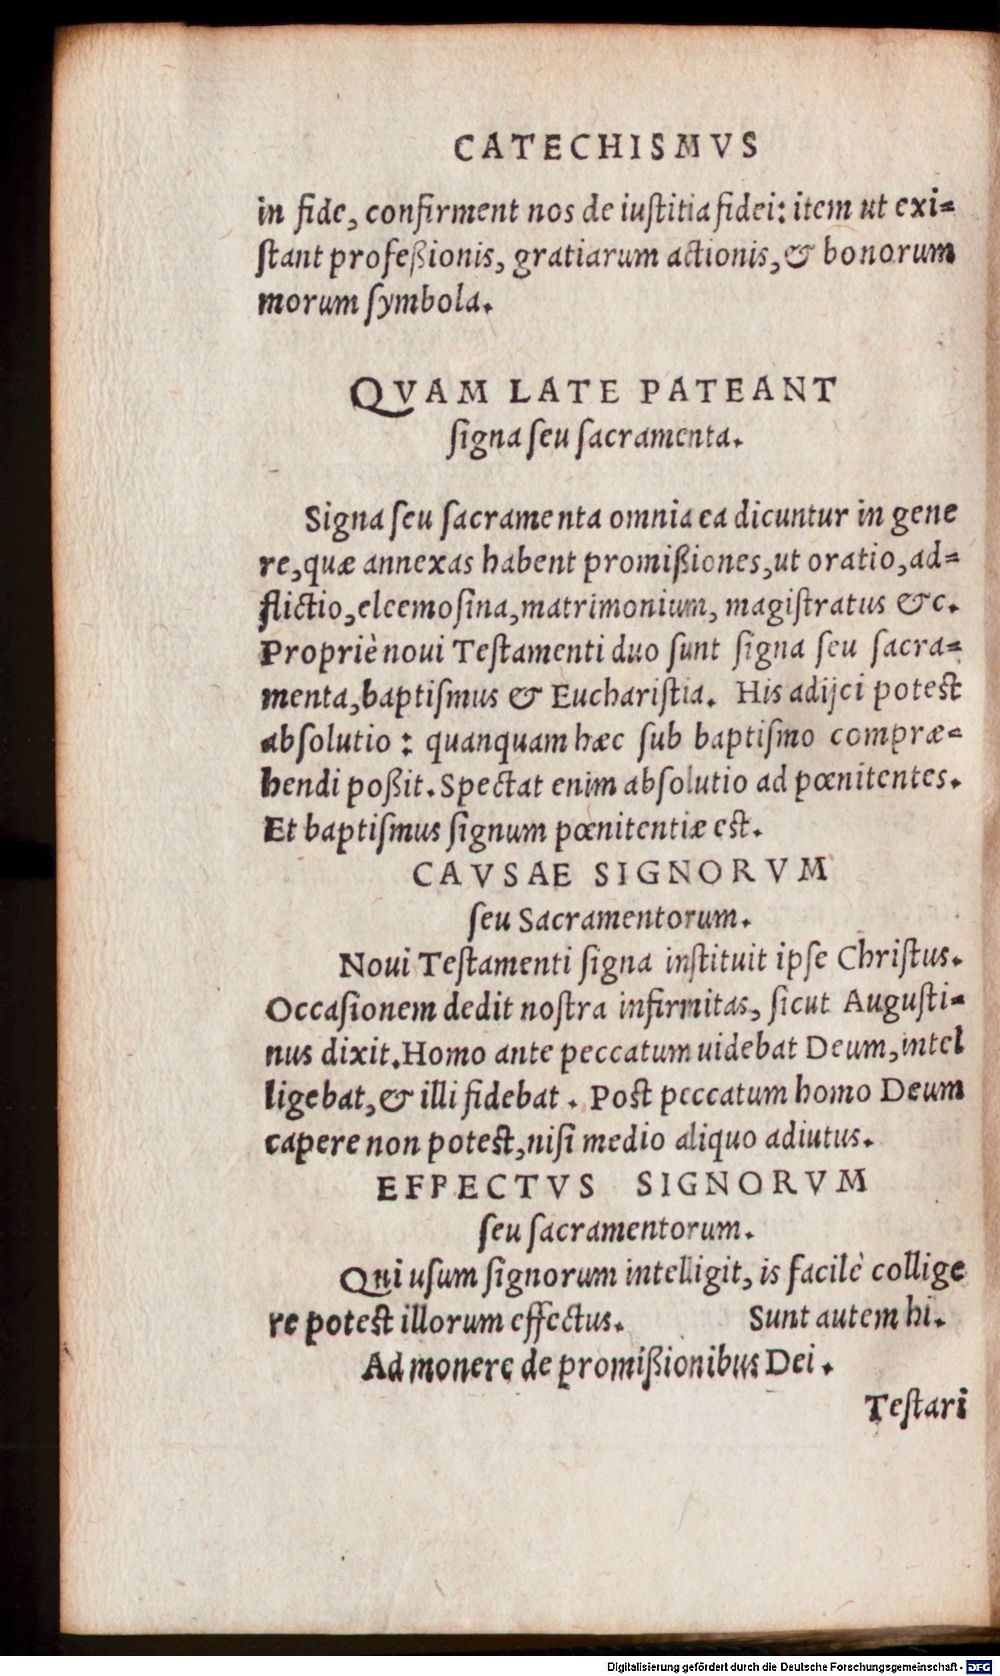 CATECHISMVS
in fide, confirment nos de iuſtitia fidei: item ut exi⸗
ſtant profeßionis, gratiarum actionis, & bonorum
morum ſymbola.
QVAM LATE PATEANT
ſigna ſeu ſacramenta.
Signa ſeu ſacramenta omnia ea dicuntur in gene
re, quæ annexas habent promißiones, ut oratio, ad⸗
flictio, eleemoſina, matrimonium, magiſtratus &c.
Propriè noui Teſtamenti duo ſunt ſigna ſeu ſacra⸗
menta, baptiſmus & Euchariſtia. His adijci poteſt
abſolutio: quanquam hæc ſub baptiſmo compræ⸗
hendi poßit. Spectat enim abſolutio ad pœnitentes.
Et baptiſmus ſignum pœnitentiæ eſt.
CAVSAE SIGNORVM
ſeu Sacramentorum.
Noui Teſtamenti ſigna inſtituit ipſe Chriſtus.
Occaſionem dedit noſtra infirmitas, ſicut Auguſti⸗
nus dixit. Homo ante peccatum uidebat Deum, intel
ligebat, & illi fidebat. Poſt peccatum homo Deum
capere non poteſt, niſi medio aliquo adiutus.
EFFECTVS SIGNORVM
ſeu ſacramentorum.
Qui uſum ſignorum intelligit, is facilè collige
re poteſt illorum effectus. Sunt autem hi.
Ad monere de promißionibus Dei.
Teſtari
Digitalisierung gefördert durch die Deutsche Forschungsgemeinschaft - DFG